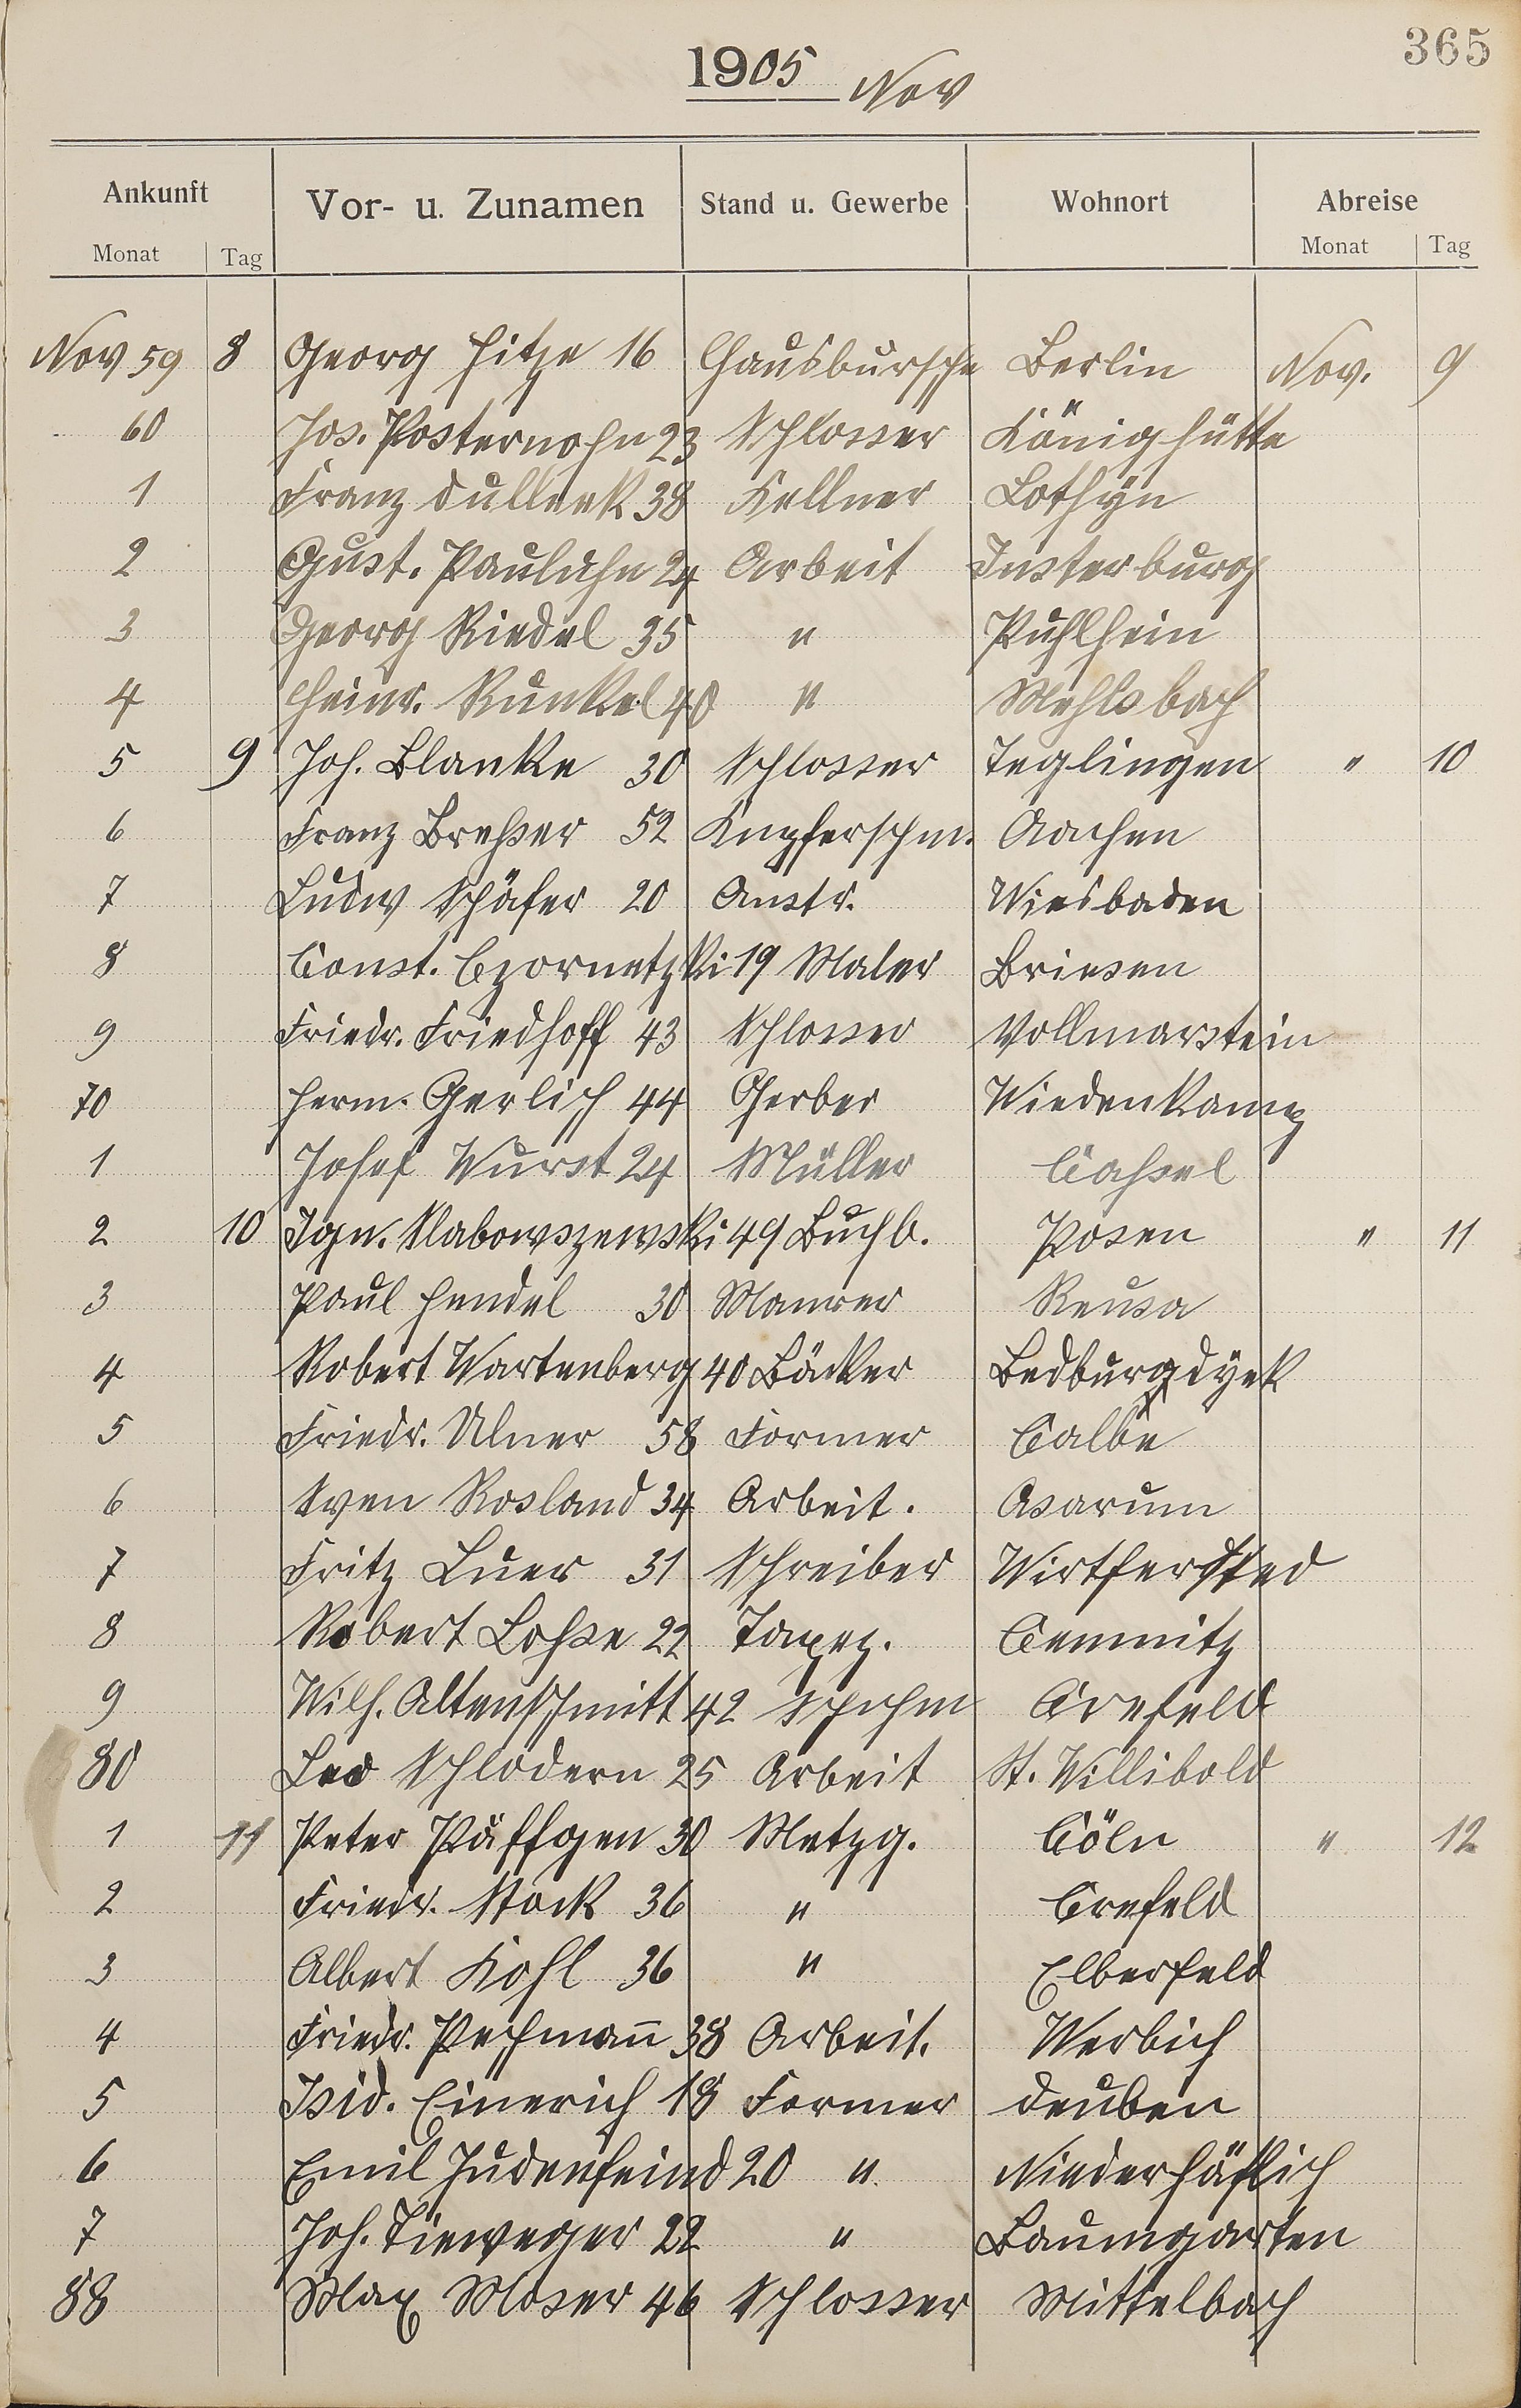 365
1905 Nov
Ankunft Vor- u. Zunamen Stand u. Gewerbe Wohnort Abreise
Monat Tag Monat Tag
Nov 59 8 Georg Hitze 16 Hausbursche Berlin Nov. 9
60 Jos. Posternohn 23 Schlosser Königshütte
1 Franz Dulleck 38 Kellner Lothyn
2 Gust. Pauluhn 24 Arbeit Insterburg
3 Georg Riedel 35 " Puhlheim
4 Heinr. Runkel 40 " Mehlsbach
5 9 Joh. Blanke 30 Schlosser Teglingen " 10
6 Franz Breßer 52 Kupferschm. Aachen
7 Ludw Schäfer 20 Anstr. Wiesbaden
8 Const. Czornetzki 19 Maler Briesen
9 Friedr. Friedhoff 43 Schlosser Vollmarstein
70 Herm. Gerlich 44 Gerber Wiedenkamp
1 Josef Wurst 24 Müller Caßsel
2 10 Ign. Slabowszewski 49 Buchb. Posen " 11
3 Paul Hendel 30 Maurer Reusa
4 Robert Wartenberg 40 Bäcker Bedburgdyck
5 Friedr. Ulner 58 Former Calbe
6 Sven Rosland 34 Arbeit. Asarum
7 Fritz Luer 31 Schreiber
8 Robert Loßse 22 Tapez. Cemnitz
9 Wilh. Altenschmitt 42 Schuhm Crefeld
80 Leo Schlodern 25 Arbeit St. Willibold
1 11 Peter Päffgen 30 Metzg. Cöln " 12
2 Friedr. Stock 36 " Crefeld
3 Albert Kohl 36 " Elberfeld
4 Friedr. Pechmann̄ 38 Arbeit. Werbich
5 Isid. Einerich 18 Former Deuben
6 Emil Judenfeind 20 " Niederhäßlich
7 Joh. Tieweger 22 " Baumgarten
88 Max Moser 46 Schlosser Mittelbach